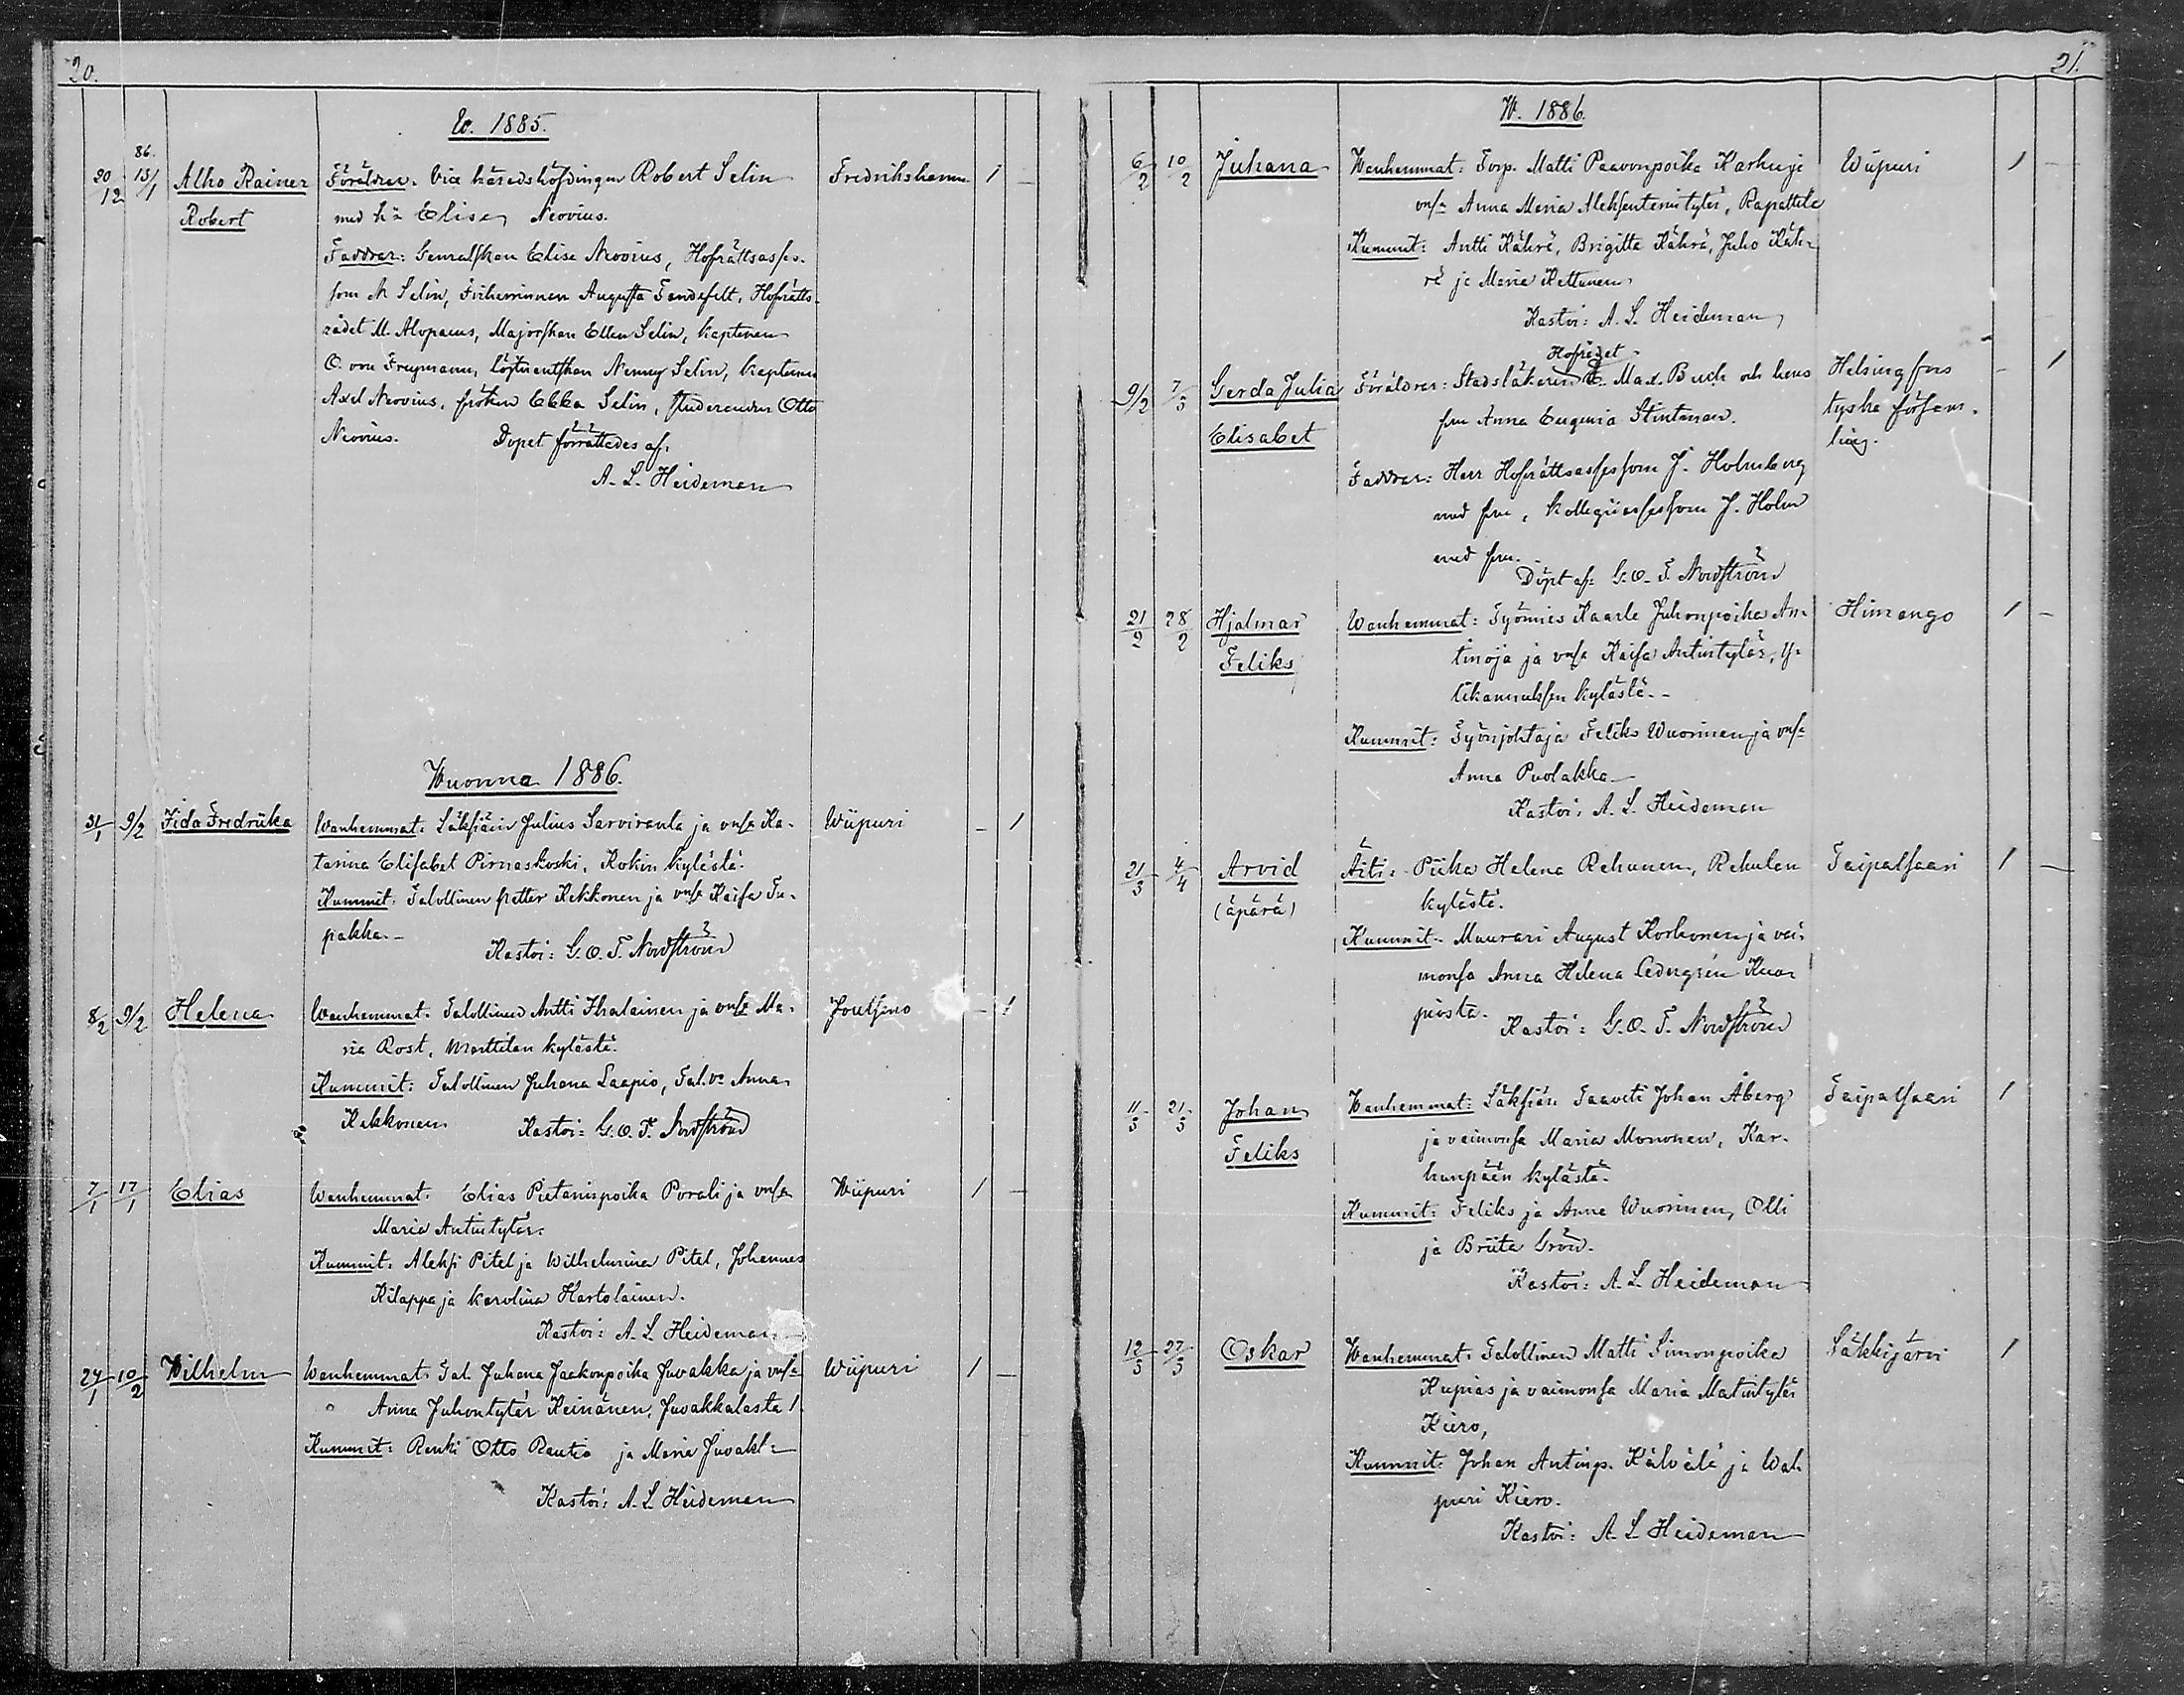 20.
W. 1885.
86.
20/12 13/1 Alho Rainer Föräldrar. Vice häradshöfdingen Robert Selin Fredrikshamn 1 –
Robert med h:a Elise Neovius.
Faddrar: Generalskan Elise Neovius, Hofrättsasses-
sorn M Selin, Friherrinnan Augusta Tandefelt, Hofrätts-
rådet M. Alopaeus, Majorskan Ellen Selin, kaptenen
O. von Freymann, löjtnantskan Nenny Selin, kaptenen
Axel Neovius, fröken Ebba Selin, studeranden Otto
Neovius. Dopet förrättades af.
A. L. Heideman
Wuonna 1886.
31/1 9/2 Fida Fredriika Wanhemmat. Läksiäin Julius Sarviranta ja vnsa Ka- Wiipuri – 1
tarina Elisabet Pirnaskoski, Kokin kylästä.
Kummit. Talollinen petter Kekkonen ja vnsa Kaisa Tu-
pakka.–
Kastoi: G. O. F. Nordström
8/2 9/2 Helena Wanhemmat. Talollinen Antti Ihalainen ja vnsa Ma- Joutseno – 1
ria Rost, Marttilan kylästä.
Kummit: Talollinen Juhana Laapio, Tal.v: Anna
Kekkonen Kastoi: G. O. F. Nordström
7/1 17/1 Elias Wanhemmat. Elias Pietarinpoika Porali ja vnsa Wiipuri 1 –
Maria Antintytär.
Kummit: Aleksi Pitel ja Wilhelmina Pitel, Johannes
Kilappa ja karolina Hartolainen.
Kastoi: A. L. Heideman
27/1 10/2 Wilhelm Wanhemmat. Tal. Juhana Jaakonpoika Juvakka ja vnsa Wiipuri 1 –
Anna Juhontytär Keinänen, Juvakkalasta 1.
Kummit: Renki Otto Rautio ja Maria Juvakk:
Kastoi: A. L. Heideman
21.
W. 1886.
6/2 10/2 Juhana Wanhemmat: Torp. Matti Paavonpoika Karhu ja Wiipuri 1 –
vnsa Anna Maria Aleksanterintytär, Rapattila
Kummit: Antti Kähra, Brigitta Kährä, Juho Käh-
rä ja Maria Kettunen
Kastoi: A. L. Heideman
Hofrådet
9/2 7/3 Gerda Julia Föräldrar: Stadsläkaren E. Max. Buch och hans Helsingfors – 1
Elisabet fru Anna Eugenia Stintman. tyska församling.
Faddrar: Herr Hofrättsassessorn J. Holmberg
med fru, kollegiiassessorn J. Holm
med fru.
Döpt af: G. O. F. Nordström
21/2 28/2 Hjalmar Wanhemmat: Työmies Kaarle Juhonpoika An- Himango 1 –
Feliks tinoja ja vnsa Kaisa Antintytär, Y-
likannuksen kylästä.–
Kummit: Työnjohtaja Feliks Wuorinen ja vnsa
Anna Puolakka
Kastoi: A. L. Heideman
21/3 4/4 Arvid Äiti: Piika Helena Rehunen, Rehulan Taipalsaari 1 –
(äpärä) kylästä.
Kummit: Muurari August Korhonen ja vai-
monsa Anna Helena Cedergrén Kuo-
piosta. Kastoi: G. O. F. Nordström
11/3 21/3 Johan Wanhemmat: Läksiäin Taaveti Johan Åberg Taipalsaari 1
Feliks ja vaimonsa Maria Mononen, Kar-
hunpään kylästä.
Kummit: Feliks ja Anna Wuorinen, Olli
ja Briita Grön.
Kastoi: A. L. Heideman
12/3 27/3 Oskar Wanhemmat. Talollinen Matti Simonpoika Säkkijärvi 1
Kupias ja vaimonsa Maria Matintytär
Kiero,
Kummit. Johan Antinp. Kälvälä ja Wal-
puri Kiero.
Kastoi: A. L. Heideman